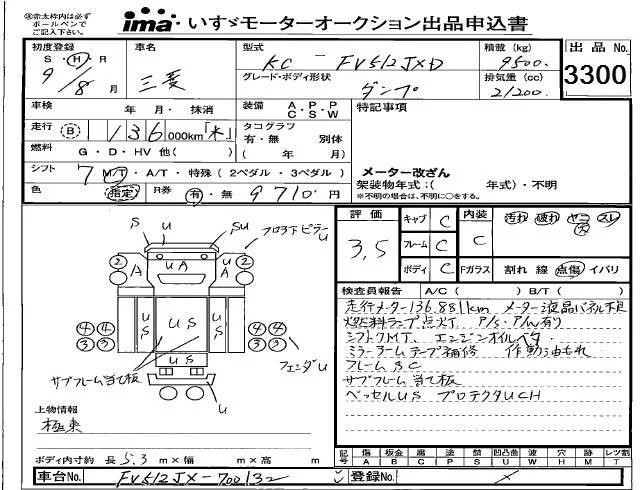 ㊟赤太枠内は必ず
ボールペンで
ご記入下さい。
ima いすゞモーターオークション出品申込書
初度登録 車名 型式 積載 (kg) 出品 No.
S・H・R 三菱 KC - FV512JXD 9500
9/8月 グレード・ボディ形状 排気量 (cc) 3300
ダンプ 21200
車検 年 月・ 抹消 装備 A・P・P C・S・W 特記事項
走行 B 136 000km「米」 タコグラフ
有・無 別体
燃料 G・D・HV 他( ) ( 年 月) メーター改ざん
シフト 7 M/T・A/T・特殊 (2ペダル・3ペダル) 架装物年式:( 年式)・不明
※不明の場合は、不明に○をする。
色 指定 R券 有・無 9710円
評価 3.5 キャブ C 内装 C 汚れ 破れ ヤニ スレ
フレーム C
ボディ C Fガラス 割れ 線 点傷 イバリ
検査員報告 A/C ( ) B/T ( )
走行メーター136.881km メーター液晶パネル不良
燃料ランプ点灯 P/S・P/W有り
シフト7MT、エンジンオイルベタ
ミラーアームテープ補修 作動油もれ
フレームSC
サブフレーム当て板
ベッセルUS プロテクタUCH
S U SU フロア下ピラーU
② A UA U A ②
④④ U S U S U S ④④
③③ ③③
US フェンダU
サブフレーム当て板 U
上物情報
極東
ボディ内寸約 長 5.3 m × 幅 m × 高 m
記号 傷 A 板金 B 腐 C 塗 P 錆 S 凹凸曲 U 波 W 穴 H 跡 M レツ割 T
車台No. FV512JX-700132 登録No.